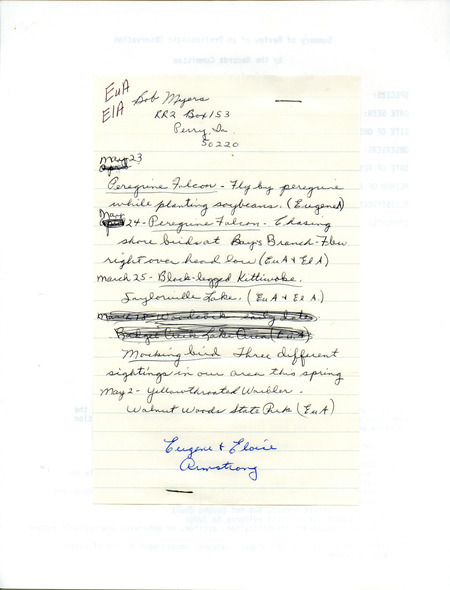 Summary of Review of an Ornithological Observation
by the Records Committee
EuA
ElA
Bob Myers
RR2 Box 153
Perry, Ia.
50220
May 23
Peregrine Falcon - Fly by peregrine
while planting soybeans. (EugeneA)
May 24 - Peregrine Falcon - Chasing
shore birds at Bays Branch - Flew
right over head low (EuA & El A)
March 25 - Black-legged Kittiwake.
Saylorville Lake. (EuA & El A.)
March 18 Woodcock early date
Badger Creek Lake Area (EuA)
Mocking bird Three different
sightings in our area this spring
May 2 - Yellowthroated Warbler.
Walnut Woods State Park (EuA)
Eugene & Eloise
Armstrong